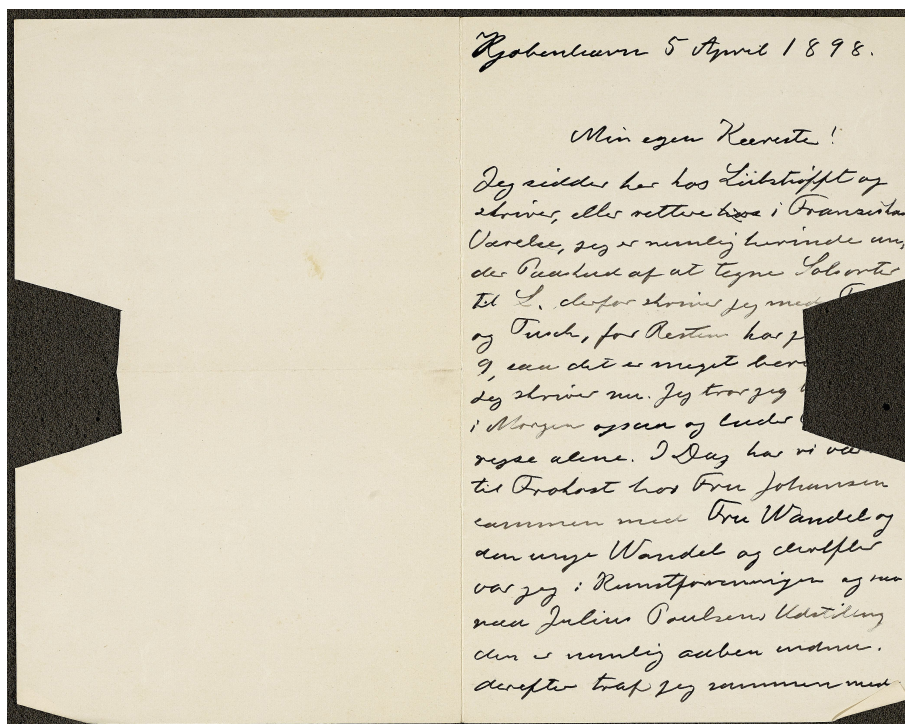 Kjøbenhavn 5 April 1898.
Min egen Kæreste!
Jeg sidder her hos Lübstrøfft og
skriver, eller rettere hos i Franziskas
Værelse, jeg er nemlig herinde un,
der Paaskud af at tegne Solsorter
til L. derfor skriver jeg med
og Tusch, for Resten har
9, saa det er meget
jeg skriver nu. Jeg tror jeg
i Morgen ogsaa og lader
rejse alene. I Dag har vi
til Frokost hos Fru Johansen
sammen med Fru Wandel og
den unge Wandel og derefter
var jeg i Kunstforeningen og saa
paa Julius Paulsens Udstilling
den er nemlig aaben endnu.
derefter traf jeg sammen med